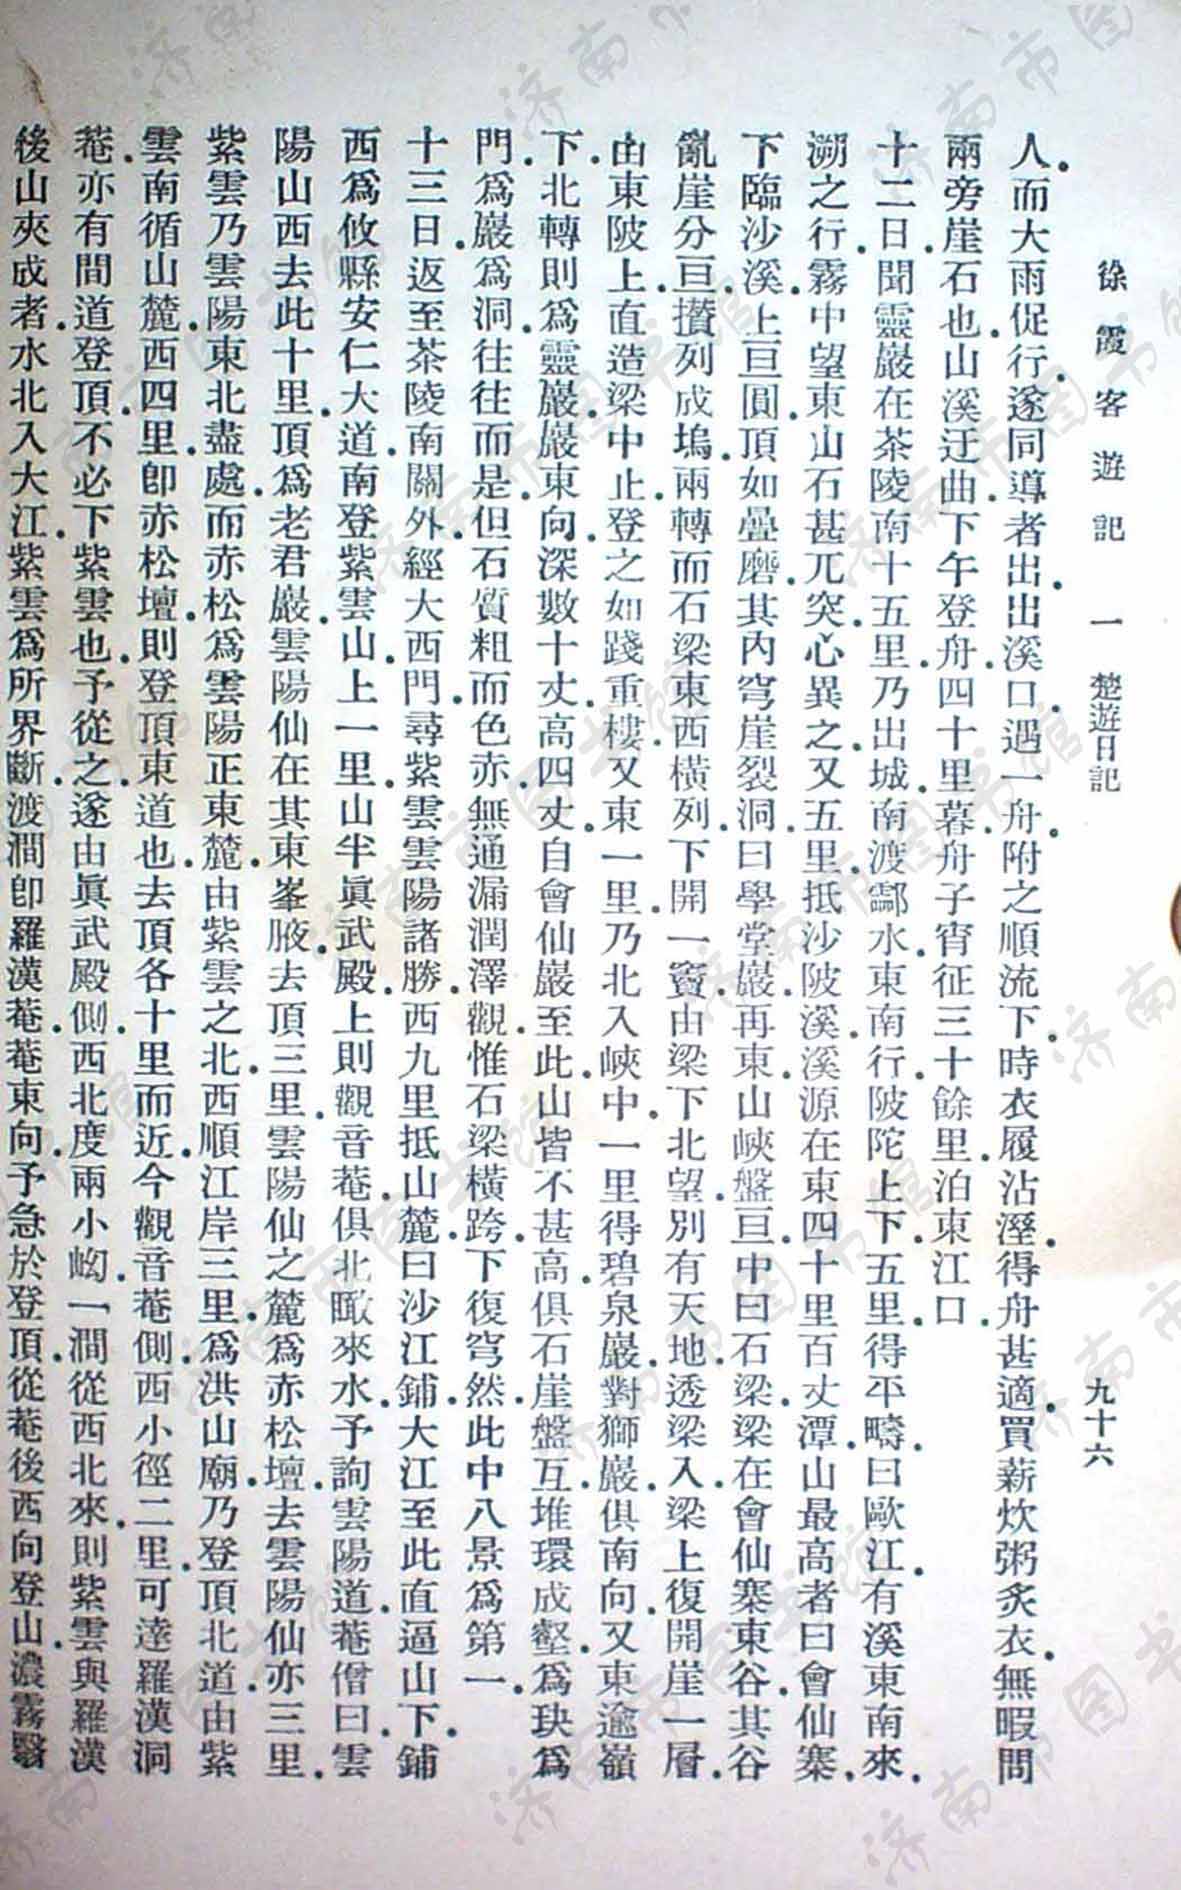 徐霞客遊記　一　楚遊日記　九十六
人。而大雨促行。遂同導者出。出溪口。遇一舟。附之順流下。時衣履沾溼。得舟甚適。買薪炊粥炙衣。無暇問
兩旁崖石也。山溪迂曲。下午登舟。四十里。暮。舟子宵征三十餘里。泊東江口。
十二日。聞靈巖在茶陵南十五里。乃出城。南渡酃水。東南行。陂陀上下。五里。得平疇。曰歐江。有溪東南來。
溯之行。霧中望東山石甚兀突。心異之。又五里。抵沙陂溪。溪源在東四十里百丈潭。山最高者曰會仙寨。
下臨沙溪。上亘圓頂如疊磨。其內穹崖裂洞。曰學堂巖。再東。山峽盤亘。中曰石梁。梁在會仙寨東谷。其谷
亂崖分亘。攢列成塢。兩轉而石梁東西橫列。下開一竇。由梁下北望。別有天地。透梁入。梁上復開崖一層。
由東陂上。直造梁中止。登之如踐重樓。又東一里。乃北入峽中。一里。得碧泉巖。對獅巖。俱南向。又東逾嶺
下。北轉則爲靈巖。巖東向。深數十丈。高四丈。自會仙巖至此。山皆不甚高。俱石崖盤互堆環成壑。爲玦爲
門。爲巖爲洞。往往而是。但石質粗而色赤。無通漏潤澤觀。惟石梁橫跨。下復穹然。此中八景爲第一。
十三日。返至茶陵南關外。經大西門。尋紫雲雲陽諸勝。西九里。抵山麓。曰沙江鋪。大江至此直逼山下。鋪
西爲攸縣安仁大道。南登紫雲山。上一里。山半眞武殿。上則觀音菴。俱北瞰來水。予詢雲陽道。菴僧曰。雲
陽山西去此十里。頂爲老君巖。雲陽仙在其東峯腋。去頂三里。雲陽仙之麓爲赤松壇。去雲陽仙亦三里。
紫雲乃雲陽東北盡處。而赤松爲雲陽正東麓。由紫雲之北。西順江岸三里。爲洪山廟。乃登頂北道。由紫
雲南循山麓西四里。卽赤松壇。則登頂東道也。去頂各十里而近。今觀音菴側。西小徑二里。可達羅漢洞
菴。亦有間道登頂。不必下紫雲也。予從之。遂由眞武殿側。西北度兩小㘭。一澗從西北來。則紫雲與羅漢
後山夾成者。水北入大江。紫雲爲所界斷。渡澗卽羅漢菴。菴東向。予急於登頂。從菴後西向登山。濃霧翳